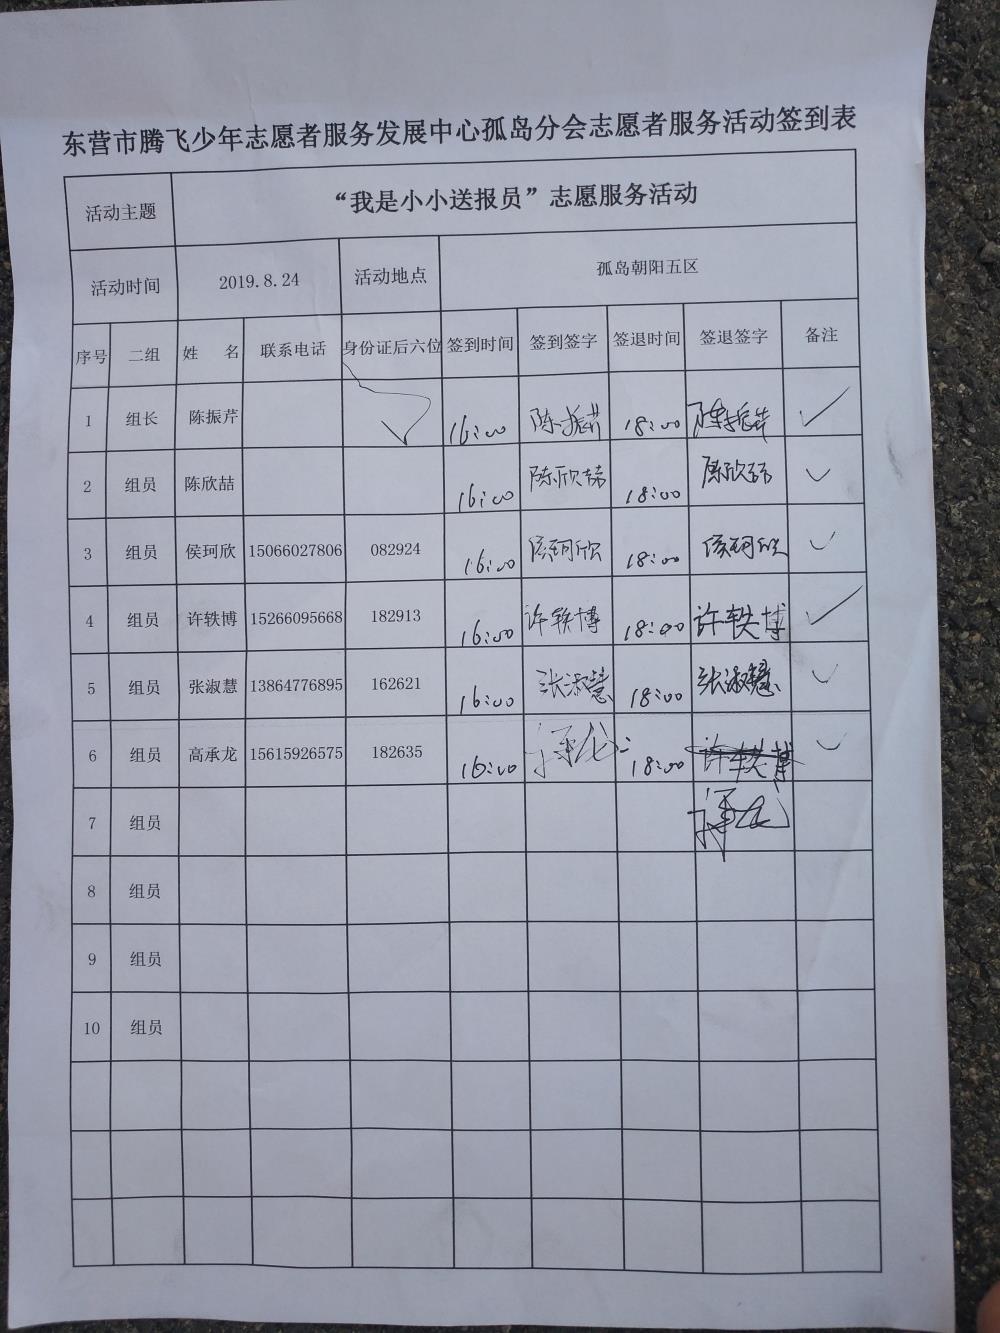 东营市腾飞少年志愿者服务发展中心孤岛分会志愿者服务活动签到表
活动主题 “我是小小送报员”志愿服务活动
活动时间 2019.8.24 活动地点 孤岛朝阳五区
序号 二组 姓 名 联系电话 身份证后六位 签到时间 签到签字 签退时间 签退签字 备注
1 组长 陈振芹 16:00 陈振芹 18:00 陈振芹
2 组员 陈欣喆 16:00 陈欣喆 18:00 陈欣喆
3 组员 侯珂欣 15066027806 082924 16:00 侯珂欣 18:00 侯珂欣
4 组员 许轶博 15266095668 182913 16:00 许轶博 18:00 许轶博
5 组员 张淑慧 13864776895 162621 16:00 张淑慧 18:00 张淑慧
6 组员 高承龙 15615926575 182635 16:00 18:00 许轶博
7 组员
8 组员
9 组员
10 组员